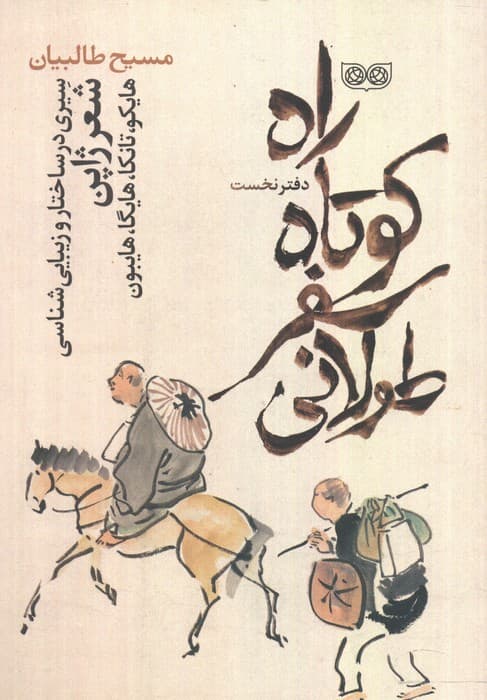 مسیح طالبیان
راه
کوتاه
سفر
طولانی
دفتر نخست
سیری در ساختار و زیبایی شناسی
شعر ژاپن
هایکو، تانکا، هایگا، هایبون